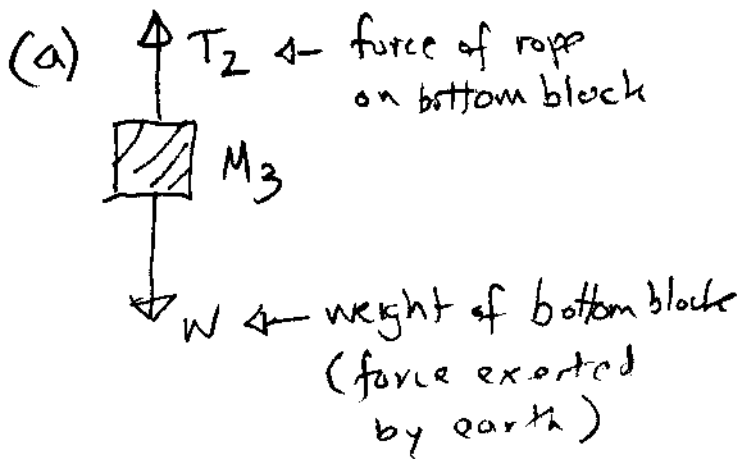 (a) T2 ← force of rope
on bottom block
M3
W ← weight of bottom block
(force exerted
by earth)